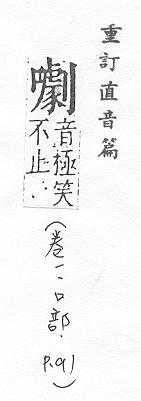 重訂直音篇
音極笑
不止
(卷一、口部. P.91)